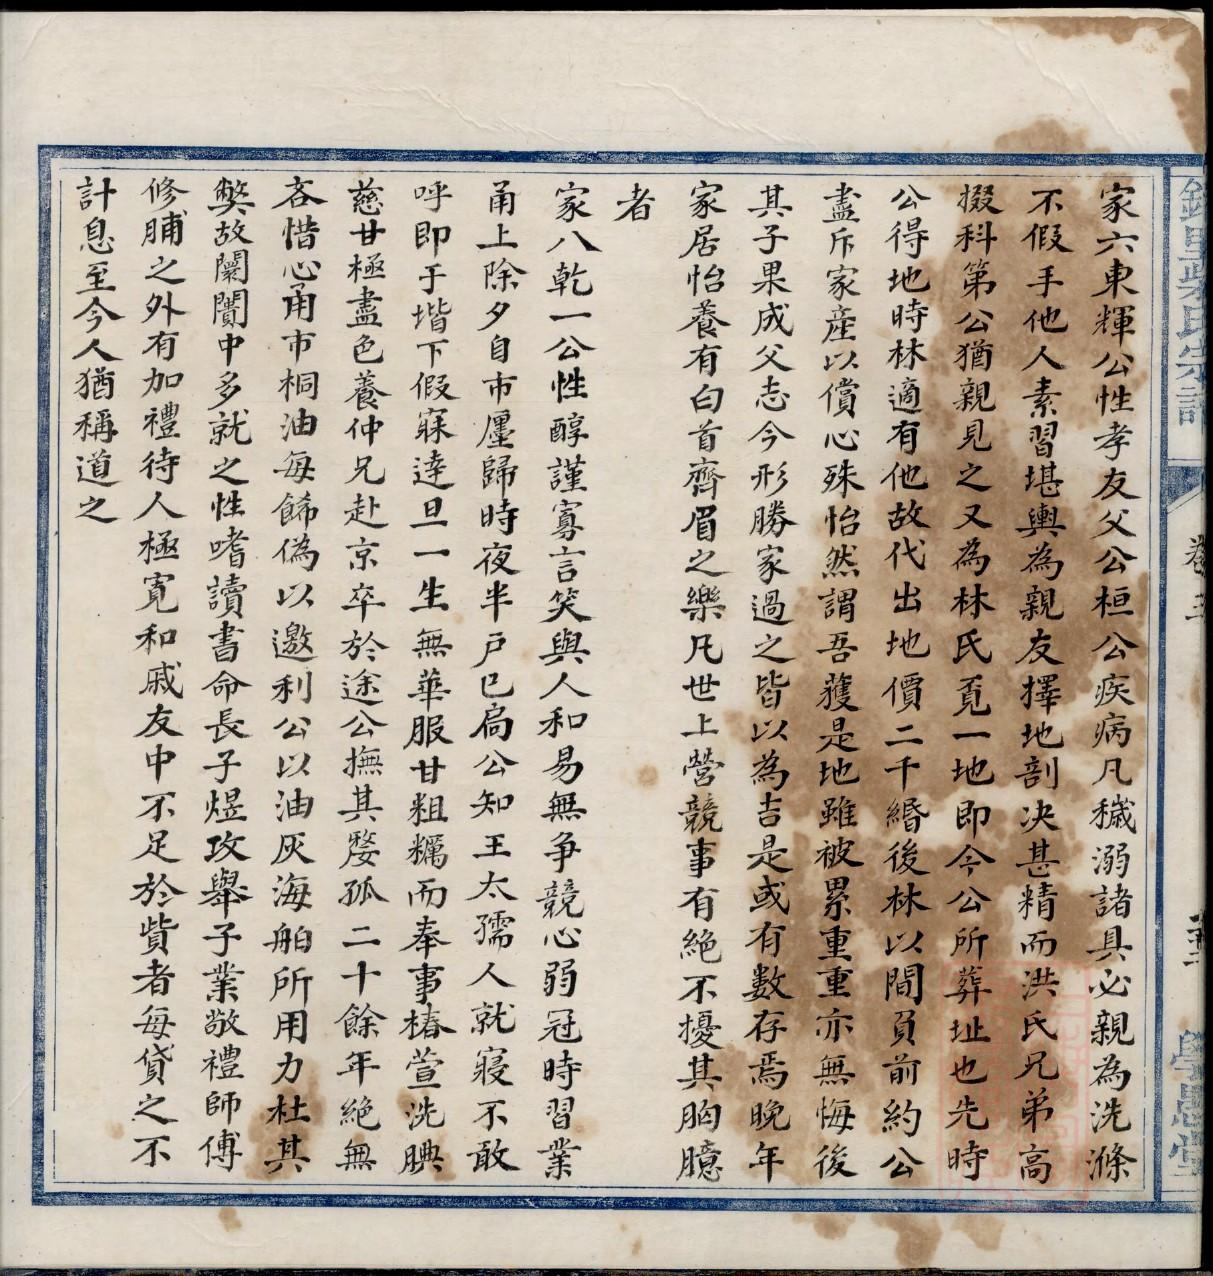 家六東輝公性孝友父公桓公疾病凡穢溺諸具必親為洗滌
不假手他人素習堪輿為親友擇地剖决甚精而洪氏兄弟高
掇科第公猶親見之又為林氏覓一地即今公所葬址也先時
公得地時林適有他故代出地價二千緡後林以間負前約公
盡斥家産以償心殊怡然謂吾蒦是地雖被累重重亦無悔後
其子果成父志今形勝家過之皆以為吉是或有数存焉晚年
家居怡養有白首齊眉之樂凡世上營競事有絕不擾其胸臆
者
家八乾一公性醇謹寡言笑與人和易無争競心弱冠時習業
甬上除夕自市廛歸時夜半戶已扃公知王太孺人就寢不敢
呼即于堦下假寐逹旦一生無華服甘粗糲而奉事椿萱洗腆
慈甘極盡色養仲兄赴京卒於途公撫其嫠孤二十餘年絕無
吝惜心甬市桐油每餙偽以邀利公以油灰海舶所用力杜其
弊故闤闠中多就之性嗜讀書命長子煜攻舉子業敬禮師傅
修脯之外有加禮待人極寛和戚友中不足於貲者每貸之不
計息至今人猶稱道之
氏宗譜
學思堂